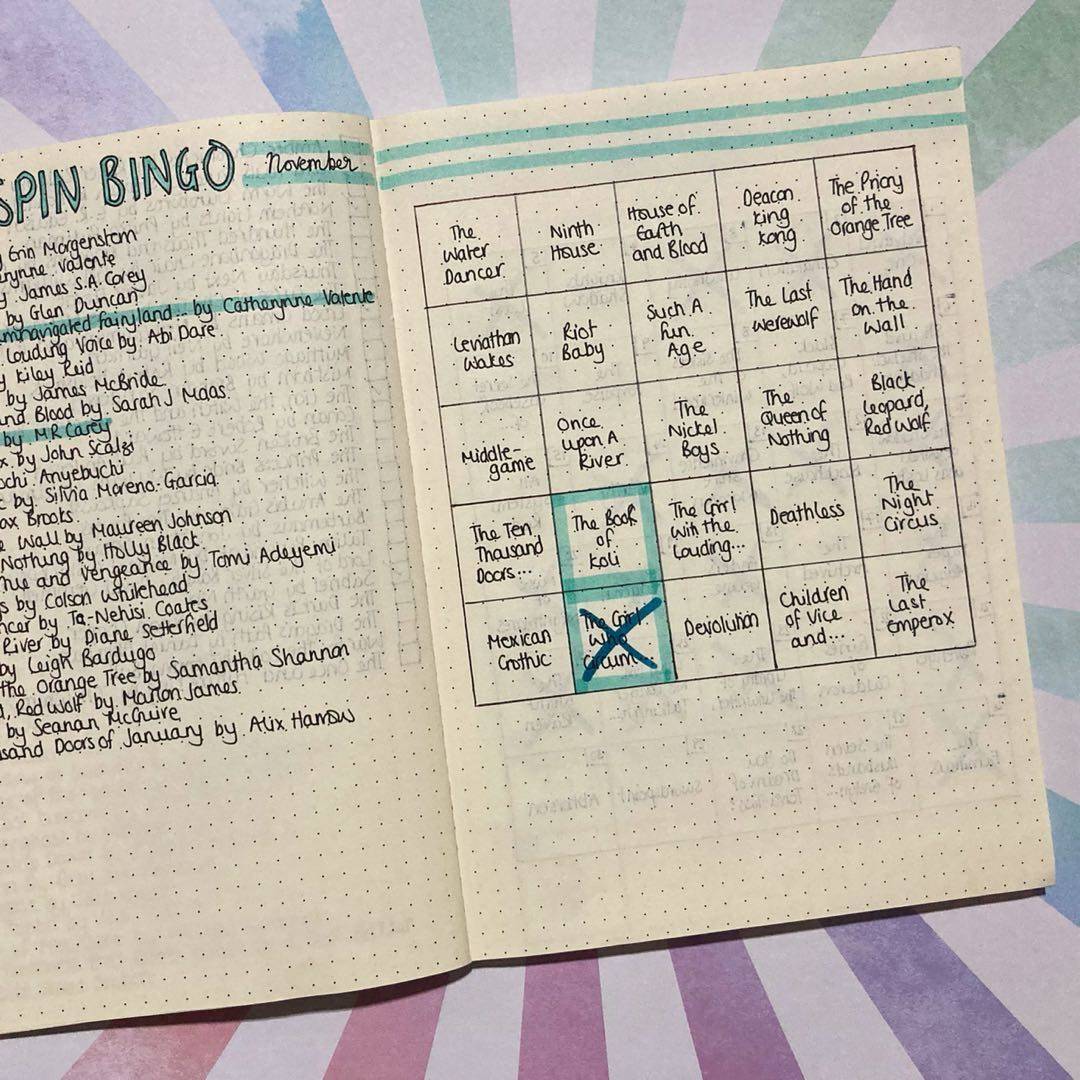 SPIN BINGO
November
Erin Morgenstern
Valente
James S.A. Corey
by Glen Duncan
fairyland... by Catherynne Valente
Louding Voice by Abi Dare
Kiley Reid
by James McBride
and Blood by Sarah J Maas
by MR Carey
by John Scalzi
Anyebuchi
by Silvia Moreno-Garcia
Max Brooks
Wall by Maureen Johnson
Nothing by Holly Black
and Vengeance by Tomi Adeyemi
by Colson Whitehead
by Ta-Nehisi Coates
River by Diane Setterfield
by Leigh Bardugo
the Orange Tree by Samantha Shannon
Red Wolf by Marlon James
by Seanan McGuire
Doors of January by Alix Harrow
The
Water
Dancer
Ninth
House
House of
Earth
and Blood
Deacon
King
Kong
The Priory
of the
Orange Tree
Leviathan
Wakes
Riot
Baby
Such A
Fun
Age
The Last
Werewolf
The Hand
on the
Wall
Middle-
game
Once
Upon A
River
The
Nickel
Boys
The
Queen of
Nothing
Black
Leopard,
Red Wolf
The Ten
Thousand
Doors...
The Book
of
Koli
The Girl
With the
Louding...
Deathless
The
Night
Circus
Mexican
Gothic
The Girl
Who
Circum
Devolution
Children
of Vice
and...
The
Last
Emperox